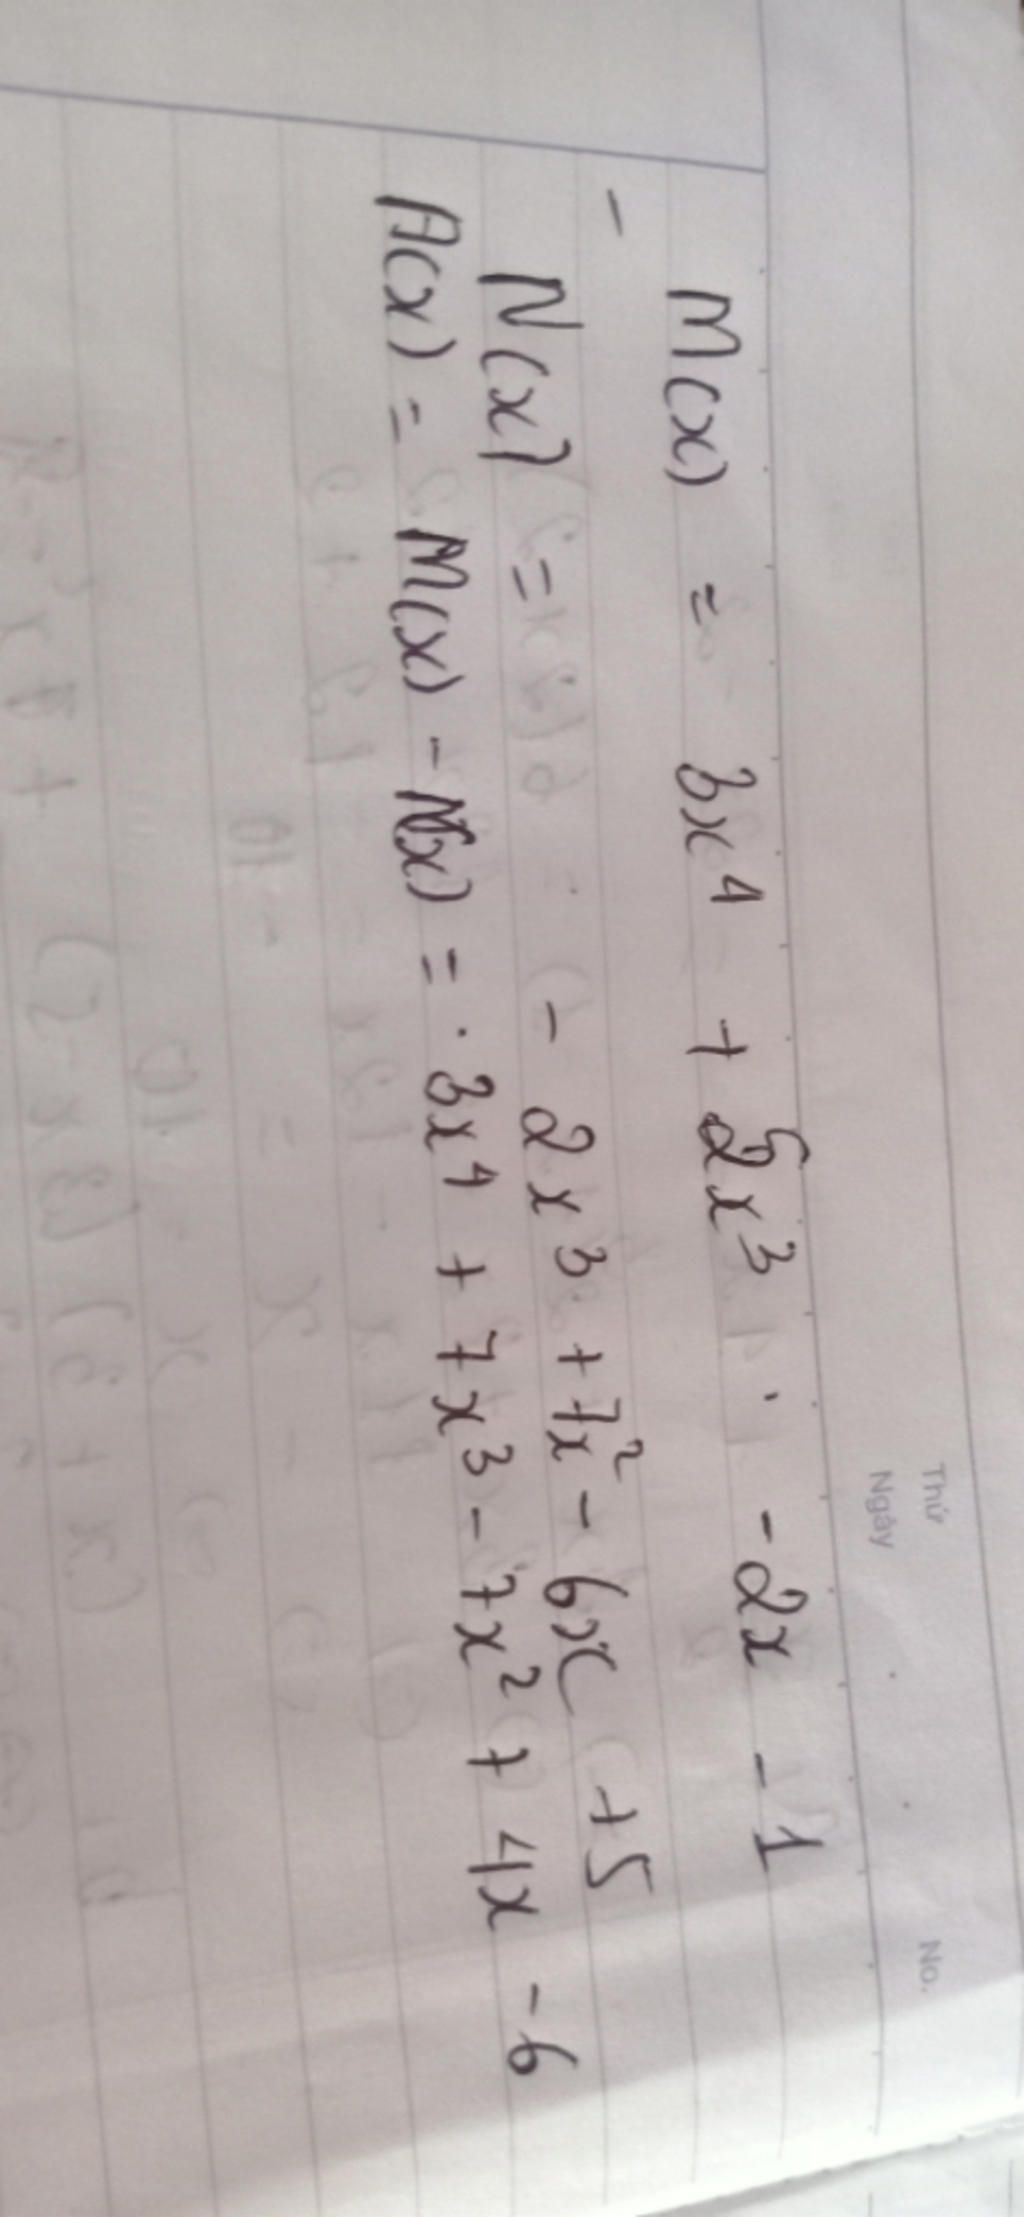 Thứ
Ngày
No.
M(x) = 3x⁴ + 5x³ - 2x - 1
-
N(x) = - 2x³ + 7x² - 6x + 5
A(x) = M(x) - N(x) = 3x⁴ + 7x³ - 7x² + 4x - 6